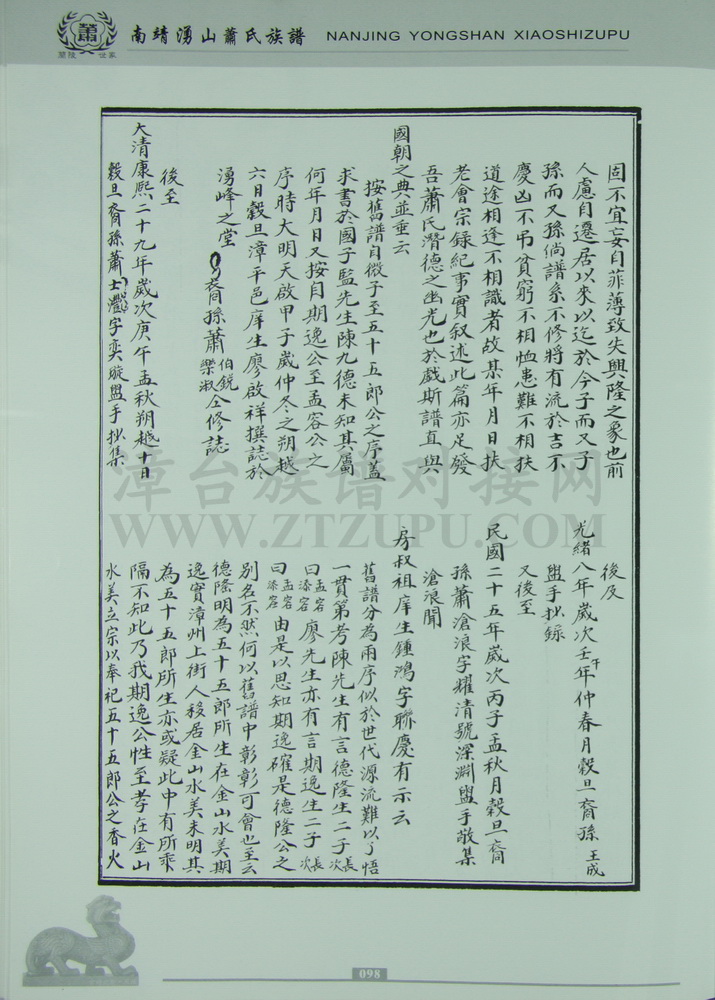 南靖湧山蕭氏族譜 NANJING YONGSHAN XIAOSHIZUPU
蕭
蘭陵 世家
固不宜妄自菲薄致失興隆之象也前
人慮自遷居以來以迄於今子而又子
孫而又孫倘譜系不修將有流於吉不
慶凶不弔貧窮不相恤患難不相扶
道途相逢不相識者故某年月日扶
老會宗錄紀事實叙述此篇亦足發
吾蕭氏潛德之幽光也於戲斯譜直與
國朝之典並垂云
按舊譜自微子至五十五郎公之序蓋
求書於國子監先生陳九德未知其屬
何年月日又按自期逸公至孟容公之
序時大明天啟甲子歲仲冬之朔越
六日穀旦漳平邑庠生廖啟祥撰誌於
湧峰之堂 裔孫蕭 伯銳 樂淑 仝修誌
後至
大清康熙二十九年歲次庚午孟秋朔越十日
穀旦裔孫蕭士灃字奕璇盥手抄集
後及
光緒八年歲次壬午年仲春月穀旦裔孫 王成
盥手抄錄
又後至
民國二十五年歲次丙子孟秋月穀旦裔
孫蕭滄浪字耀清號深淵盥手敬集
滄浪聞
房叔祖庠生鍾鴻字聯慶有示云
舊譜分為兩序似於世代源流難以了悟
一貫第考陳先生有言德隆生二子 長 次
曰 孟容 添容 廖先生亦有言期逸生二子 長 次
曰 孟容 添容 由是以思知期逸確是德隆公之
別名不然何以舊譜中彰彰可會也至云
德隆明為五十五郎所生在金山水美期
逸實漳州上街人移居金山水美未明其
為五十五郎所生亦或疑此中有所乘
隔不知此乃我期逸公性至孝在金山
水美立宗以奉祀五十五郎公之香火
漳台族谱对接网
WWW.ZTZUPU.COM
098